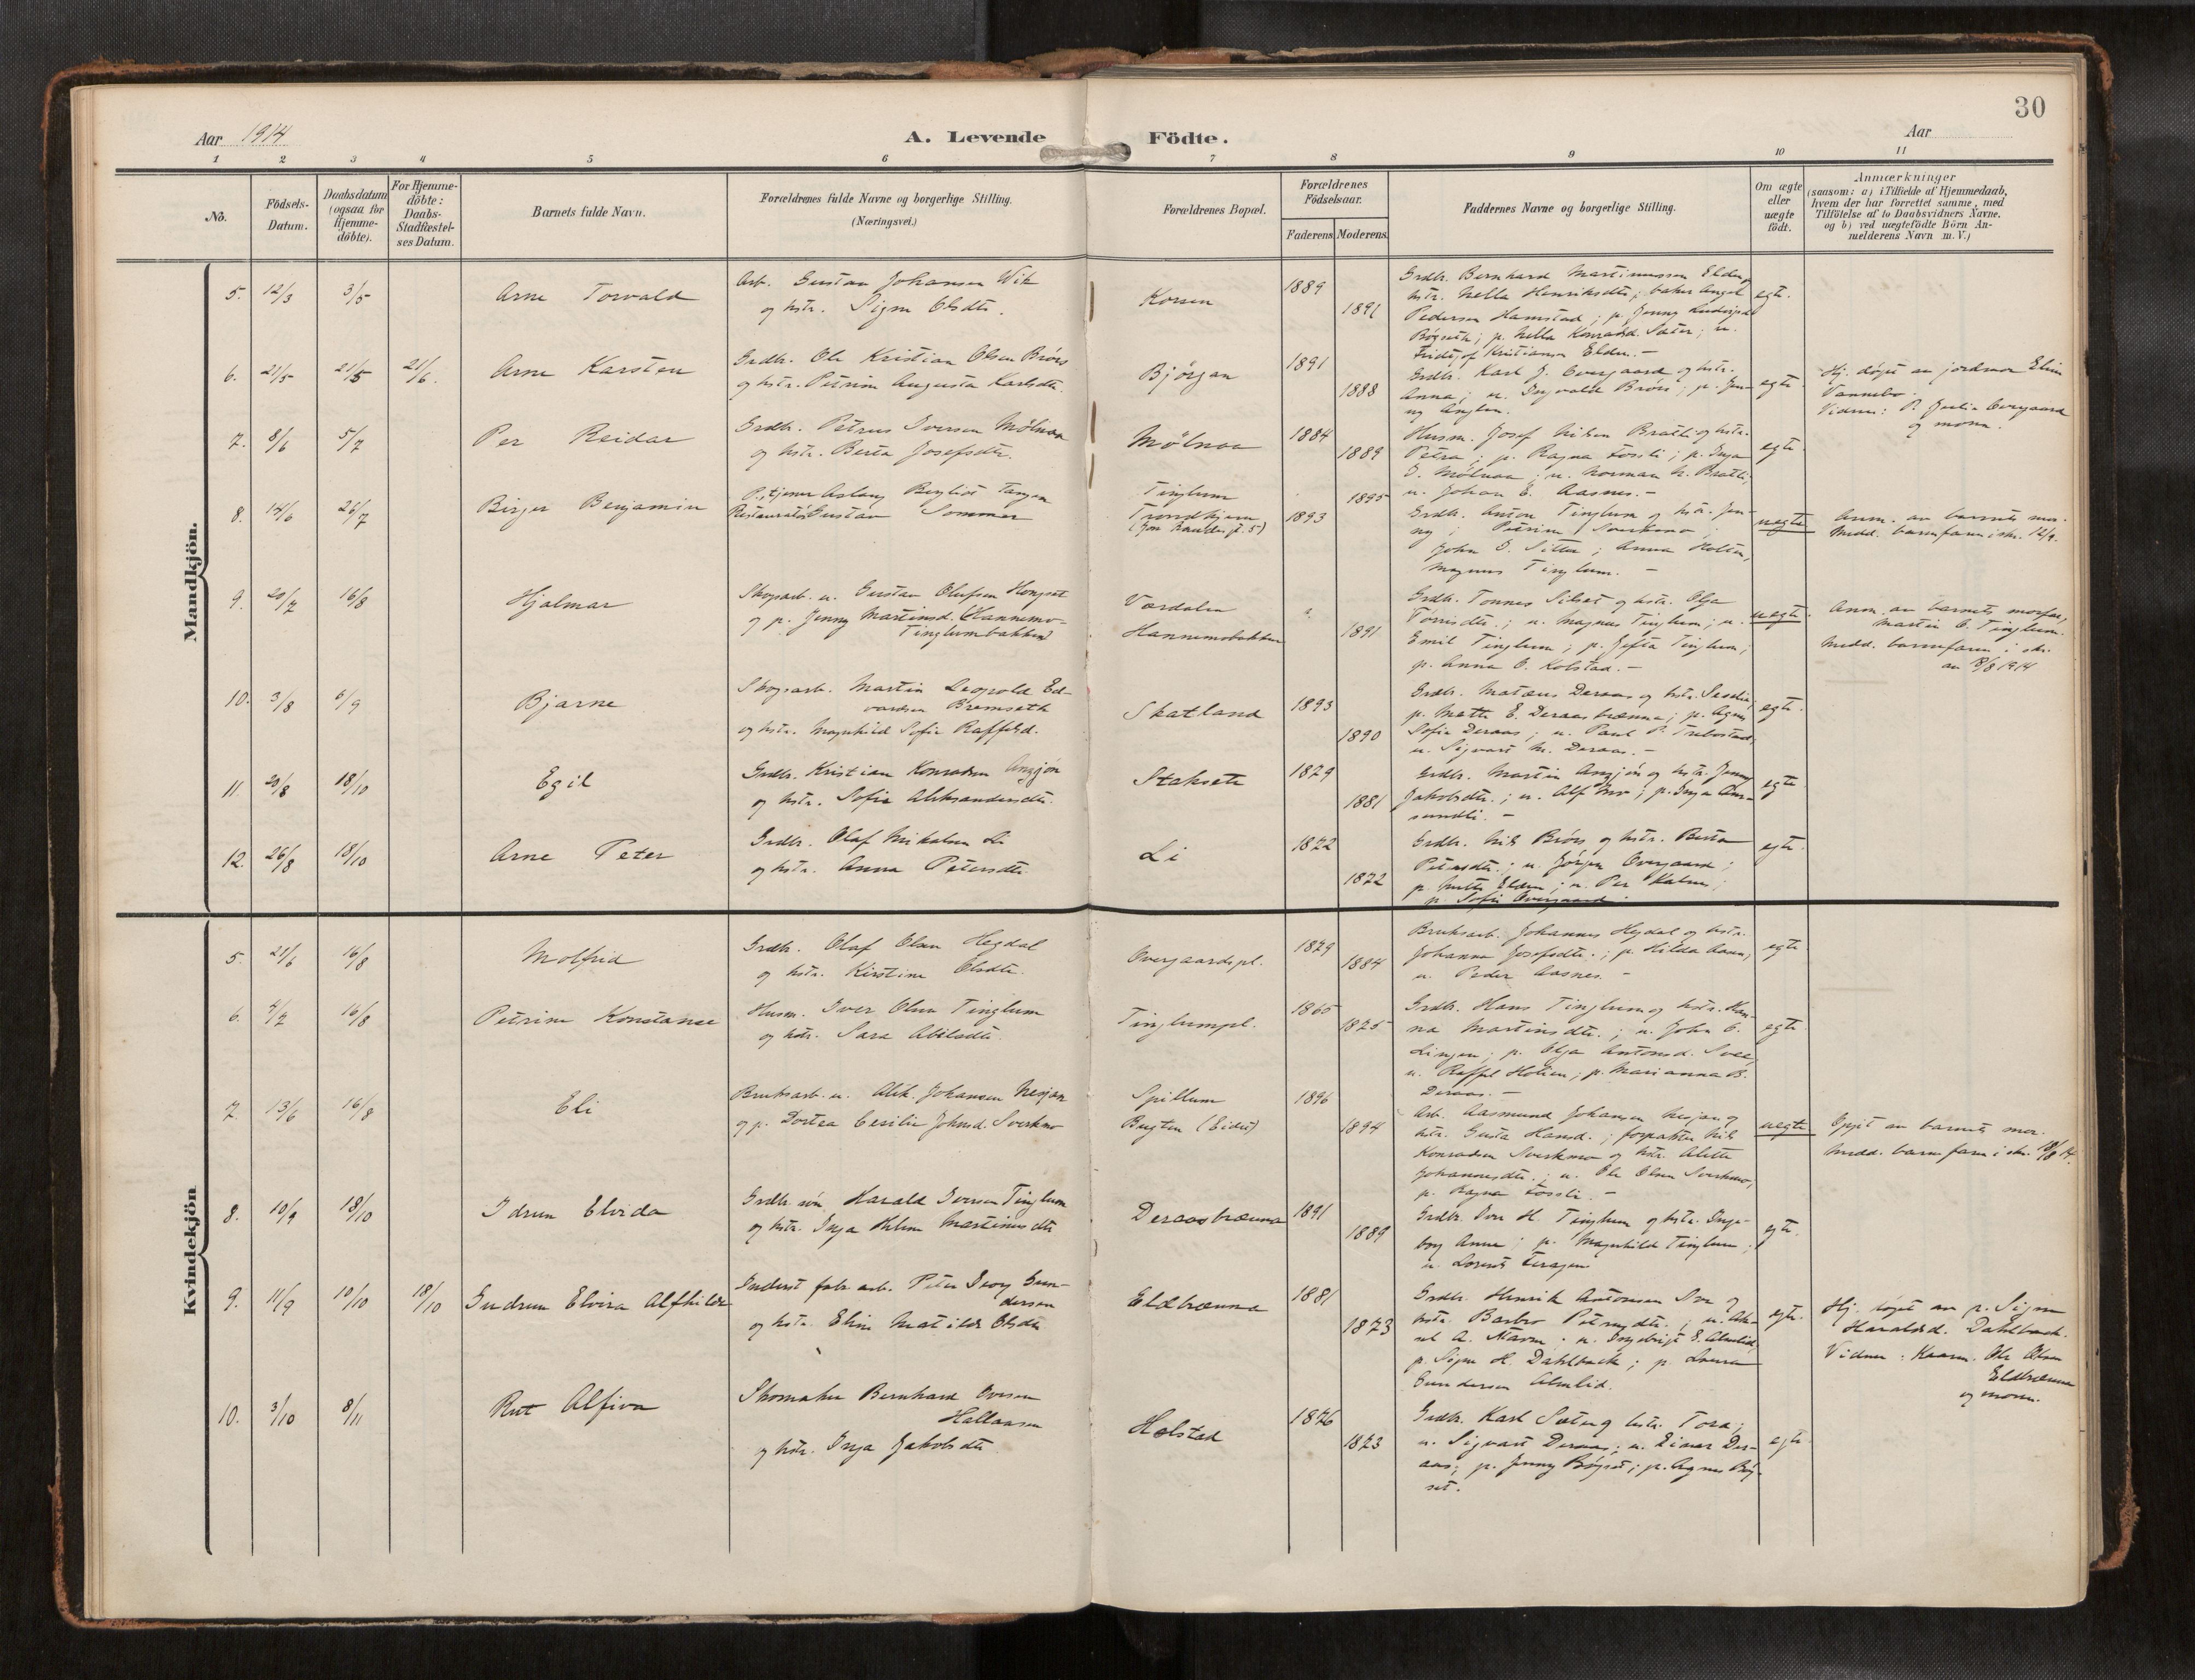 30
Aar 1914
A. Levende Födte.
Aar
1 2 3 4 5 6 7 8 9 10 11
No.
Födsels-Datum.
Daabsdatum (ogsaa for Hjemme-döbte).
For Hjemme-döbte: Daabs-Stadfæstel-ses Datum.
Barnets fulde Navn.
Forældrenes fulde Navne og borgerlige Stilling.
(Næringsvei.)
Forældrenes Bopæl.
Forældrenes Födselsaar.
Faderens. Moderens.
Faddernes Navne og borgerlige Stilling.
Om ægte eller uægte födt.
Anmærkninger
(saasom: a) i Tilfælde af Hjemmedaab,
hvem der har forrettet samme, med
Tilföielse af to Daabsvidners Navne,
og b) ved uægtefödte Börn An-
melderens Navn m. V.)
Mandkjön.
5. 12/3 3/5 Arne Torvald
Arb. Gustav Johansen Wik
og hstr. Signe Olsdtr.
Korsen 1889 1891
Grdbr. Bernhard Martinussen Elden,
hstr. Nella Henriksdtr; baker Angel
Pedersen Hamstad; p. Jenny Ludvigsd.
Bøgseth; p. Nella Konradsd. Sæter; u.
Fridtjof Kristiansen Elden.-
egte.
6. 21/5 21/5 21/6. Arne Karsten
Grdbr. Ole Kristian Olsen Brørs
og hstr. Petrine Augusta Karlsdtr.
Bjørgan 1891 1888
Grdbr. Karl J. Overgaard og hstr.
Anna; u. Ingvald Brørs; p. Jen-
ny
egte.
Hj. døpt av jordmor Elin
Vannebo.
Vidner: P. Julie Overgaard
og moren.
7. 8/6 5/7 Per Reidar
Grdbr. Petrus Iversen Mölnaa
og hstr. Berta Josefsdtr.
Mölnaa 1884 1889
Husm. Josef Nilsen Bratli og hstr.
Petra; p. Ragna Fossli; p. Inga
I. Mölnaa; u. Norman N. Bratli;
u. Johan E. Aasnes.-
egte.
8. 14/6 26/7 Birger Benjamin
P., tjener Aslaug Bergliot Tangen
Restauratör Gustav Sommer
Tinglum
Trondhjem
1895 1893
Grdbr. Anton Tinglum og hstr. Jen-
ny; Petrine Sverkmo;
John I. Sitter; Anna Holten,
Magnus Tinglum. -
uegte
Anm. av barnets mor.
Medd. barnefaren i skr. 12/9.
9. 20/7 16/8 Hjalmar
Skogsarb. u. Gustav Olufsen Hongset
og p. Jenny Martinsd. (Hannemo-
Tinglumbakken)
Værdalen
Hannemobakken
1891
Grdbr. Tonnes Silset og hstr. Olga
Tørrisdtr.; u. Magnus Tinglum; u.
Emil Tinglum; p. Jefta Tinglum;
p. Anna O. Kolstad.-
uegte.
Anm. av barnets morfar,
Martin O. Tinglum.
Medd. barnefaren i skr.
av 18/8 1914
10. 3/8 6/9 Bjarne
Skogsarb. Martin Leopold Ed-
vardsen Bremseth
og hstr. Magnhild Sofie Raffelsd.
Skatland 1893 1890
Grdbr. Matæus Deraas og hstr. Seselie,
p. Mette E. Deraasbrænna; p. Agnes
Sofie Deraas; u. Paul P. Trebostad;
u. Sigvart M. Deraas.-
egte.
11. 20/8 18/10 Egil
Grdbr. Kristian Konradsen Angjön
og hstr. Sofie Aleksandersdtr.
Staksete 1879 1881
Grdbr. Martin Angjön og hstr. Jenny
Jakobsdtr.; u. Alf Mo; p. Inga Aas-
sundli. -
egte
12. 26/8 18/10 Arne Peter
Grdbr. Olaf Mikalsen Li
og hstr. Anna Petersdtr.
Li 1872 1872
Grdbr. Nils Brørs og hstr. Berta
Petersdtr.; u. Jörgen Overgaard;
p. Mette Elden; u. Per Kalen;
p. Sofie Overgaard.
egte.
Kvindekjön
5. 21/6 16/8 Molfrid
Grdbr. Olaf Olsen Hegdal
og hstr. Kirstine Olsdtr.
Overgaardspl. 1879 1884
Bruksarb. Johannes Hegdal og hstr.
Johanna Josefsdtr.; p. Hilda Aasnes,
u. Peder Aasnes. -
egte.
6. 4/7 16/8 Petrine Konstanse
Husm. Iver Olsen Tinglum
og hstr. Sara Abelsdtr.
Tinglumpl. 1865 1875
Grdbr. Hans Tinglum og hstr. Han-
na Martinsdtr.; u. John O.
Lingen; p. Olga Antonsd. Svee,
u. Raffel Holien; p. Marianna B.
Deraas.-
egte.
7. 13/6 16/8 Eli
Bruksarb. u. Alek. Johansen Nesjan
og p. Dortea Cesilie Johnsd. Sverkmo
Spillum
Bugten (Eidet)
1896 1894
Arb. Aasmund Johansen Nesjan og
hstr. Gusta Hansd.; forpakter Nils
Konradsen Sverkmo og hstr. Alette
Johannesdtr.; u. Ole Olsen Sverkmo,
p. Ragna Fossli. -
uegte
Opgit av barnets mor.
Medd. barnefaren i skr. 18/8 14.
8. 10/9 18/10 Idrun Elvida
Grdbr. søn Harald Iversen Tinglum
og hstr. Inga Oline Martinusdtr
Deraasbrænna 1891 1889
Grdbr. Iver H. Tinglum og hstr. Inge-
borg Anna; p. Magnhild Tinglum;
u. Lorents Feragen
egte.
9. 11/9 10/10 18/10 Gudrun Elvira Alfhilda
Inderst fabr. arb. Peter Georg Gun-
dersen
og hstr. Elin Matilde Olsdtr
Eldbrænna 1881 1873
Grdbr. Henrik Antonsen Sve og
hstr. Barbro Petersdtr.; u. Ak-
sel A. Stavrn; u. Ingebrigt E. Almlid,
p. Signe H. Dahlback; p. Laura
Gundersen Almlid.
egte.
Hj. døpt av p. Signe
Haraldsd. Dahlback.
Vidner: Kaarm. Ole Olsen
Eldbrænna
og moren.
10. 3/10 8/11 Rut Alfiva
Skomaker Bernhard Iversen
Hallaasen
og hstr. Inga Jakobsdtr
Holstad 1876 1873
Grdbr. Karl Sæter og hstr. Tora;
u. Sigvart Deraas; u. Einar Der-
aas; p. Jenny Bøgset; p. Agnes Bøg-
set.
egte